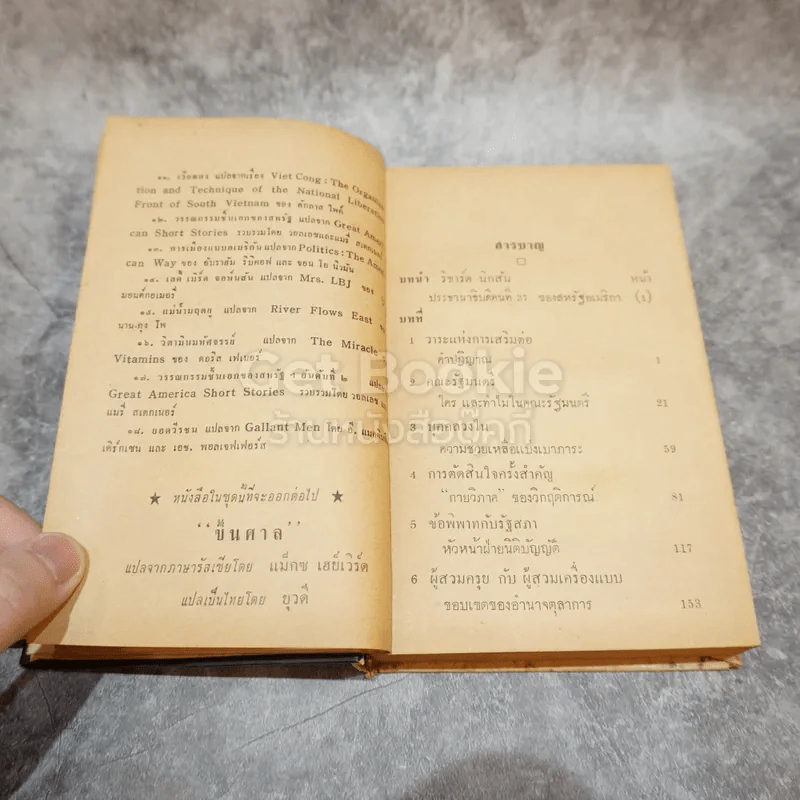 ๑๑. เวียตกง แปลจากเรื่อง Viet Cong : The Organiza
tion and Technique of the National Liberation
Front of South Vietnam ของ ดักลาส ไพค์
๑๒. วรรณกรรมชั้นเอกของสหรัฐ แปลจาก Great Ameri
can Short Stories รวบรวมโดย วอลเลซและแมรี่
๑๓. การเมืองแบบอเมริกัน แปลจาก Politics : The Ameri
can Way ของ อับราฮัม ริบิคอฟ และ จอน โอ นิวมัน
๑๔. เลดี้ เบิร์ด จอห์นสัน แปลจาก Mrs. LBJ ของ
มอนต์กอเมอรี่
๑๕. แม่น้ำมฤตยู แปลจาก River Flows East
๑๖. วิตามินมหัศจรรย์ แปลจาก The Miracle
Vitamins ของ ดอริส เฟเยอร์
๑๗. วรรณกรรมชั้นเอกของสหรัฐ ฯ อันดับที่ ๒
Great America Short Stories รวบรวมโดย วอลเลซ
แมรี่ สเตกเนอร์
๑๘. ยอดวีรชน แปลจาก Gallant Men โดย อี.
เดิร์กเซน และ เอช. พอลเจฟเฟอร์ส
★ หนังสือในชุดนี้ที่จะออกต่อไป ★
“ขึ้นศาล”
แปลจากภาษารัสเซียโดย แม็กซ เฮย์เวิร์ด
แปลเป็นไทยโดย ยุวดี
สารบาญ
บทนำ ริชาร์ด นิกสัน หน้า
ประธานาธิบดีคนที่ 37 ของสหรัฐอเมริกา (1)
บทที่
1 วาระแห่งการเสริมต่อ
คำปฏิญาณ 1
2 คณะรัฐมนตรี
ใคร และทำไมในคณะรัฐมนตรี 21
3 บุคคลวงใน
ความช่วยเหลือแบ่งเบาภาระ 59
4 การตัดสินใจครั้งสำคัญ
“กายวิภาค” ของวิกฤติการณ์ 81
5 ข้อพิพาทกับรัฐสภา
หัวหน้าฝ่ายนิติบัญญัติ 117
6 ผู้สวมครุย กับ ผู้สวมเครื่องแบบ
ขอบเขตของอำนาจตุลาการ 153
Get Bookie
ร้านหนังสือบุ๊คกี้